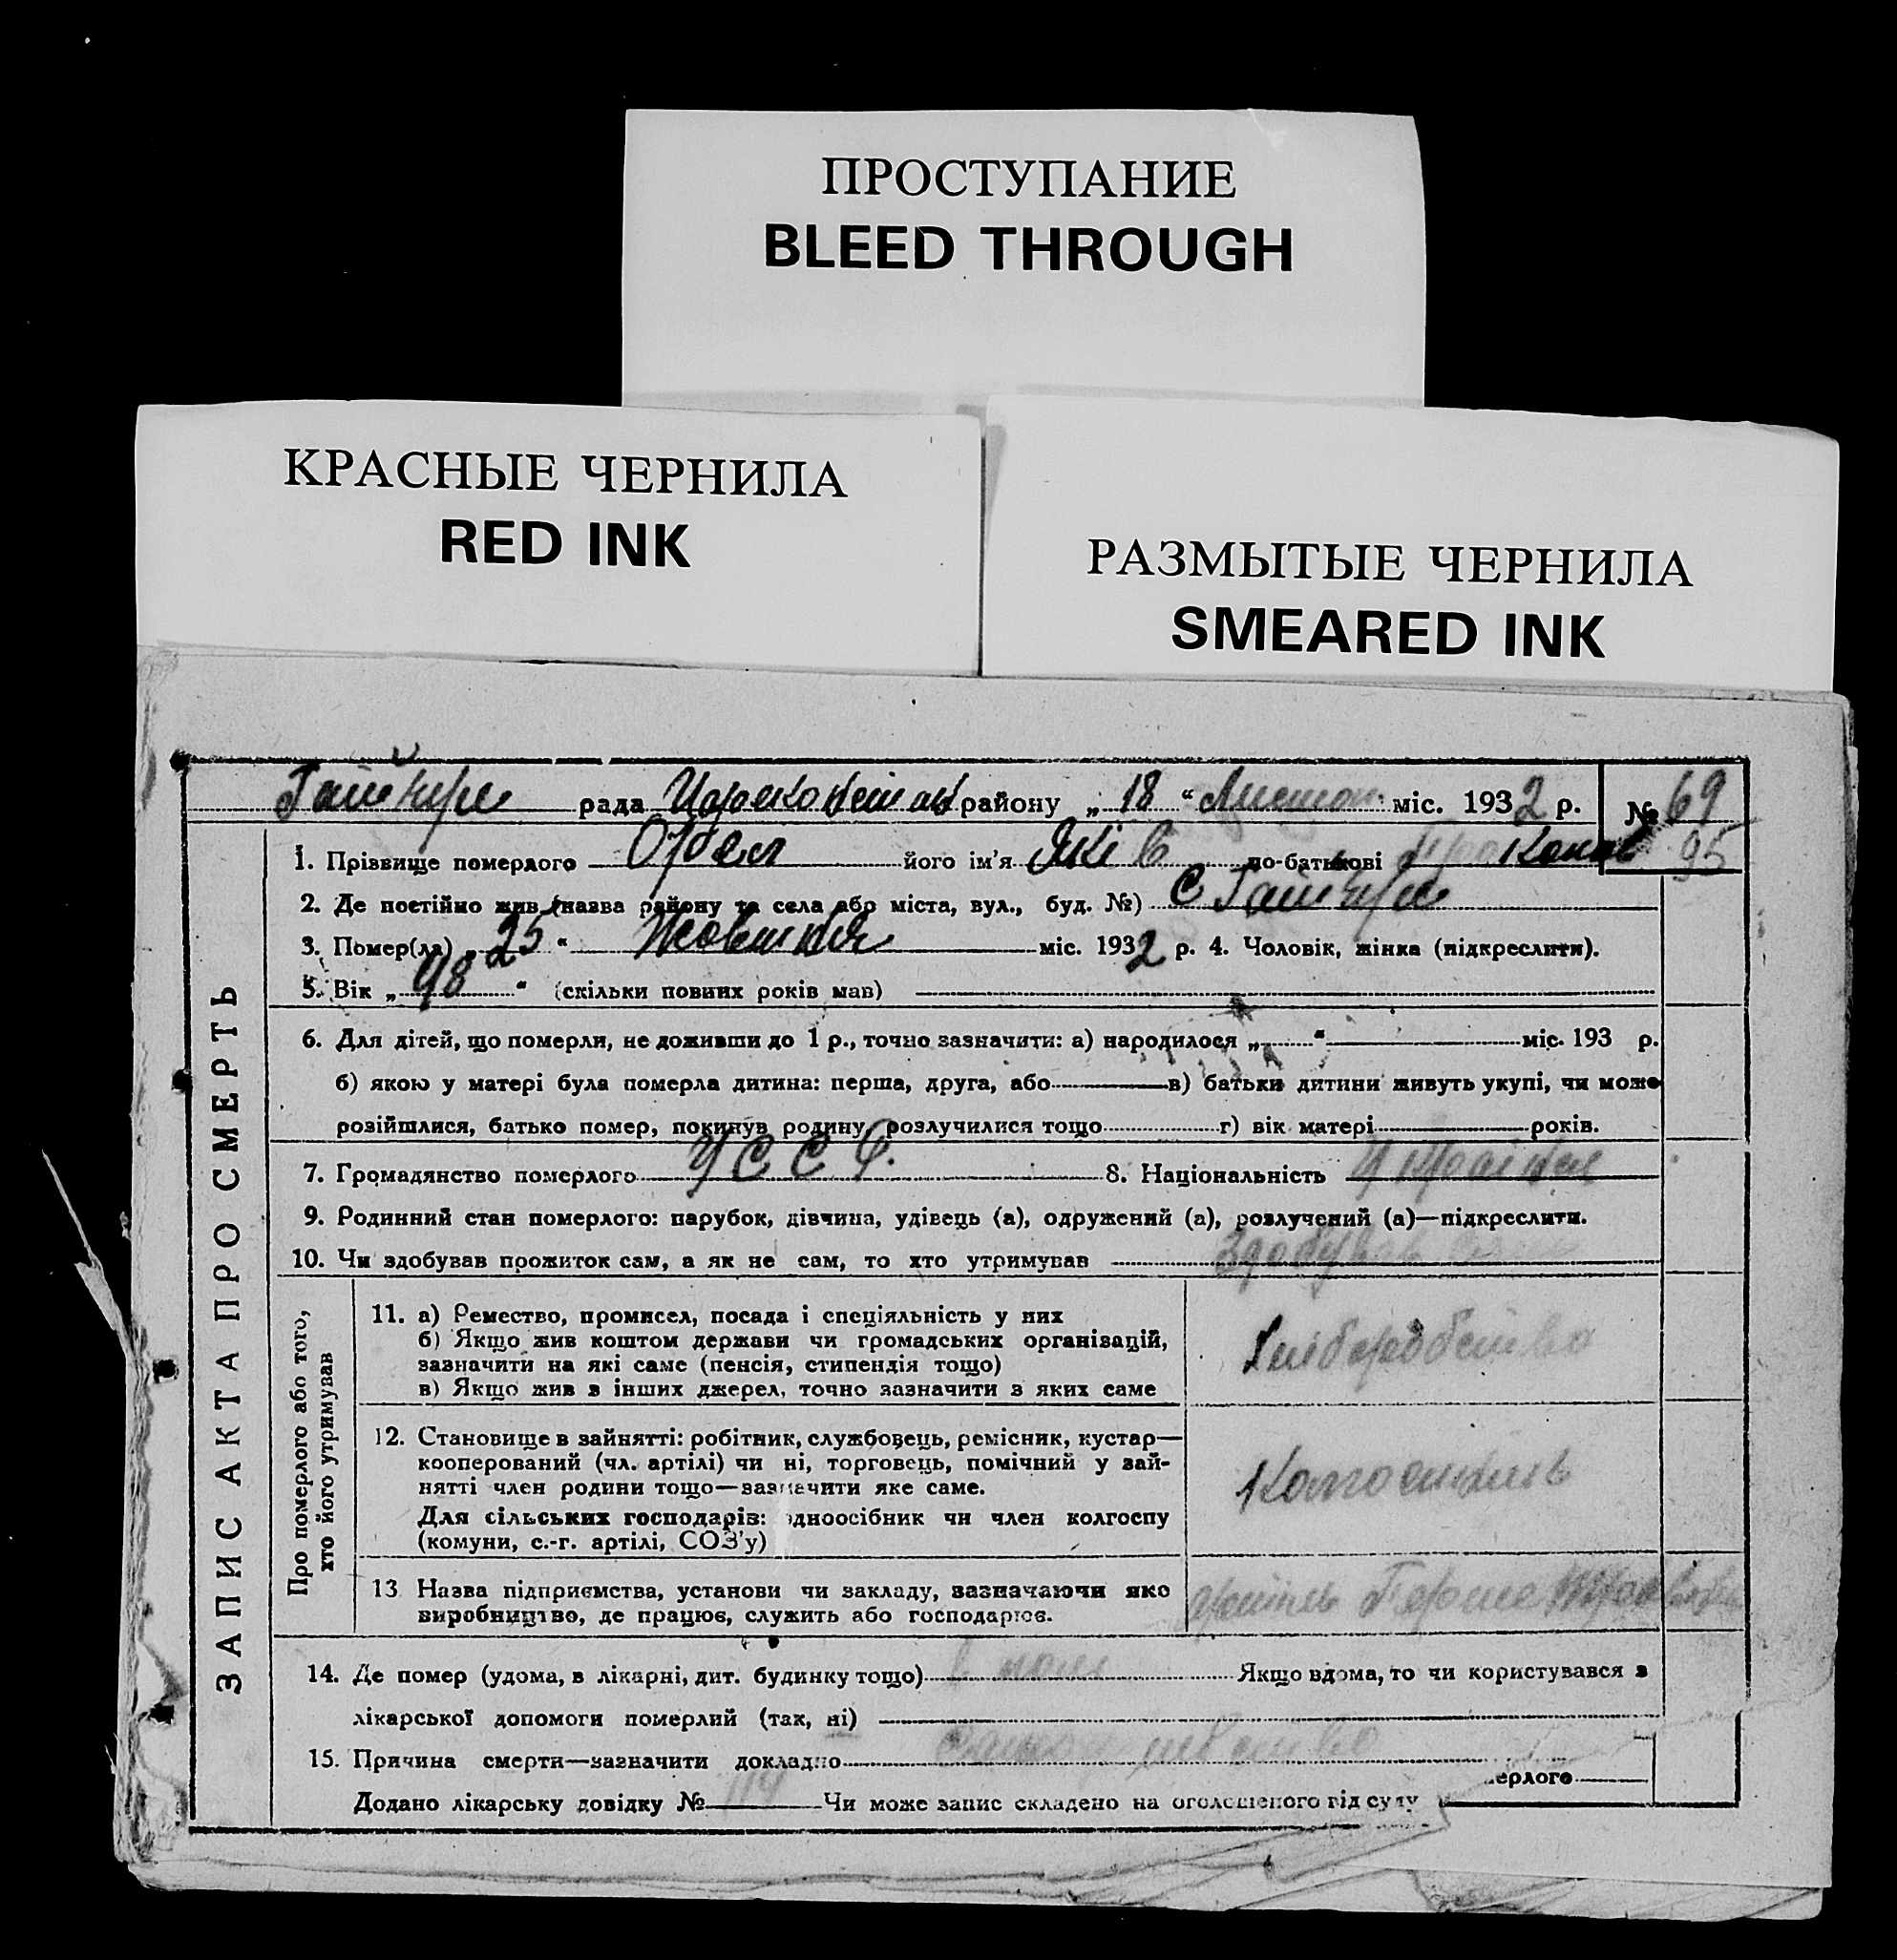 ПРОСТУПАНИЕ
BLEED THROUGH
КРАСНЫЕ ЧЕРНИЛА
RED INK
РАЗМЫТЫЕ ЧЕРНИЛА
SMEARED INK
рада району „ 18 “ Листоп міс. 1932 р. № 69
95
1. Прізвище померлого Орел його ім'я Яків по-батькові
2. Де постійно жив (назва району та села або міста, вул., буд. №) с
3. Помер(ла) „ 25 “ Жовтня міс. 1932 р. 4. Чоловік, жінка (підкреслити).
5. Вік „ 48 “ (скільки повних років мав)
6. Для дітей, що померли, не доживши до 1 р., точно зазначити: а) народилося „ “ міс. 193 р.
б) якою у матері була померла дитина: перша, друга, або в) батьки дитини живуть укупі, чи може
розійшлися, батько помер, покинув родину, розлучилися тощо г) вік матері років.
7. Громадянство померлого УССР. 8. Національність
9. Родинний стан померлого: парубок, дівчина, удівець (а), одружений (а), розлучений (а)—підкреслити.
10. Чи здобував прожиток сам, а як не сам, то хто утримував Здобував сам
ЗАПИС АКТА ПРО СМЕРТЬ
Про померлого або того,
хто його утримував
11. а) Ремество, промисел, посада і спеціяльність у них
б) Якщо жив коштом держави чи громадських організацій,
зазначити на які саме (пенсія, стипендія тощо)
в) Якщо жив з інших джерел, точно зазначити з яких саме
12. Становище в зайнятті: робітник, службовець, ремісник, кустар—
кооперований (чл. артілі) чи ні, торговець, помічний у зай-
нятті член родини тощо—зазначити яке саме.
Для сільських господарів: одноосібник чи член колгоспу
(комуни, с.-г. артілі, СОЗ'у)
13 Назва підприємства, установи чи закладу, зазначаючи яко
виробництво, де працює, служить або господарює.
14. Де помер (удома, в лікарні, дит. будинку тощо) Якщо вдома, то чи користувався з
лікарської допомоги померлий (так, ні)
15. Причина смерти—зазначити докладно
ерлого
Додано лікарську довідку № Чи може запис складено на оголошеного під суду